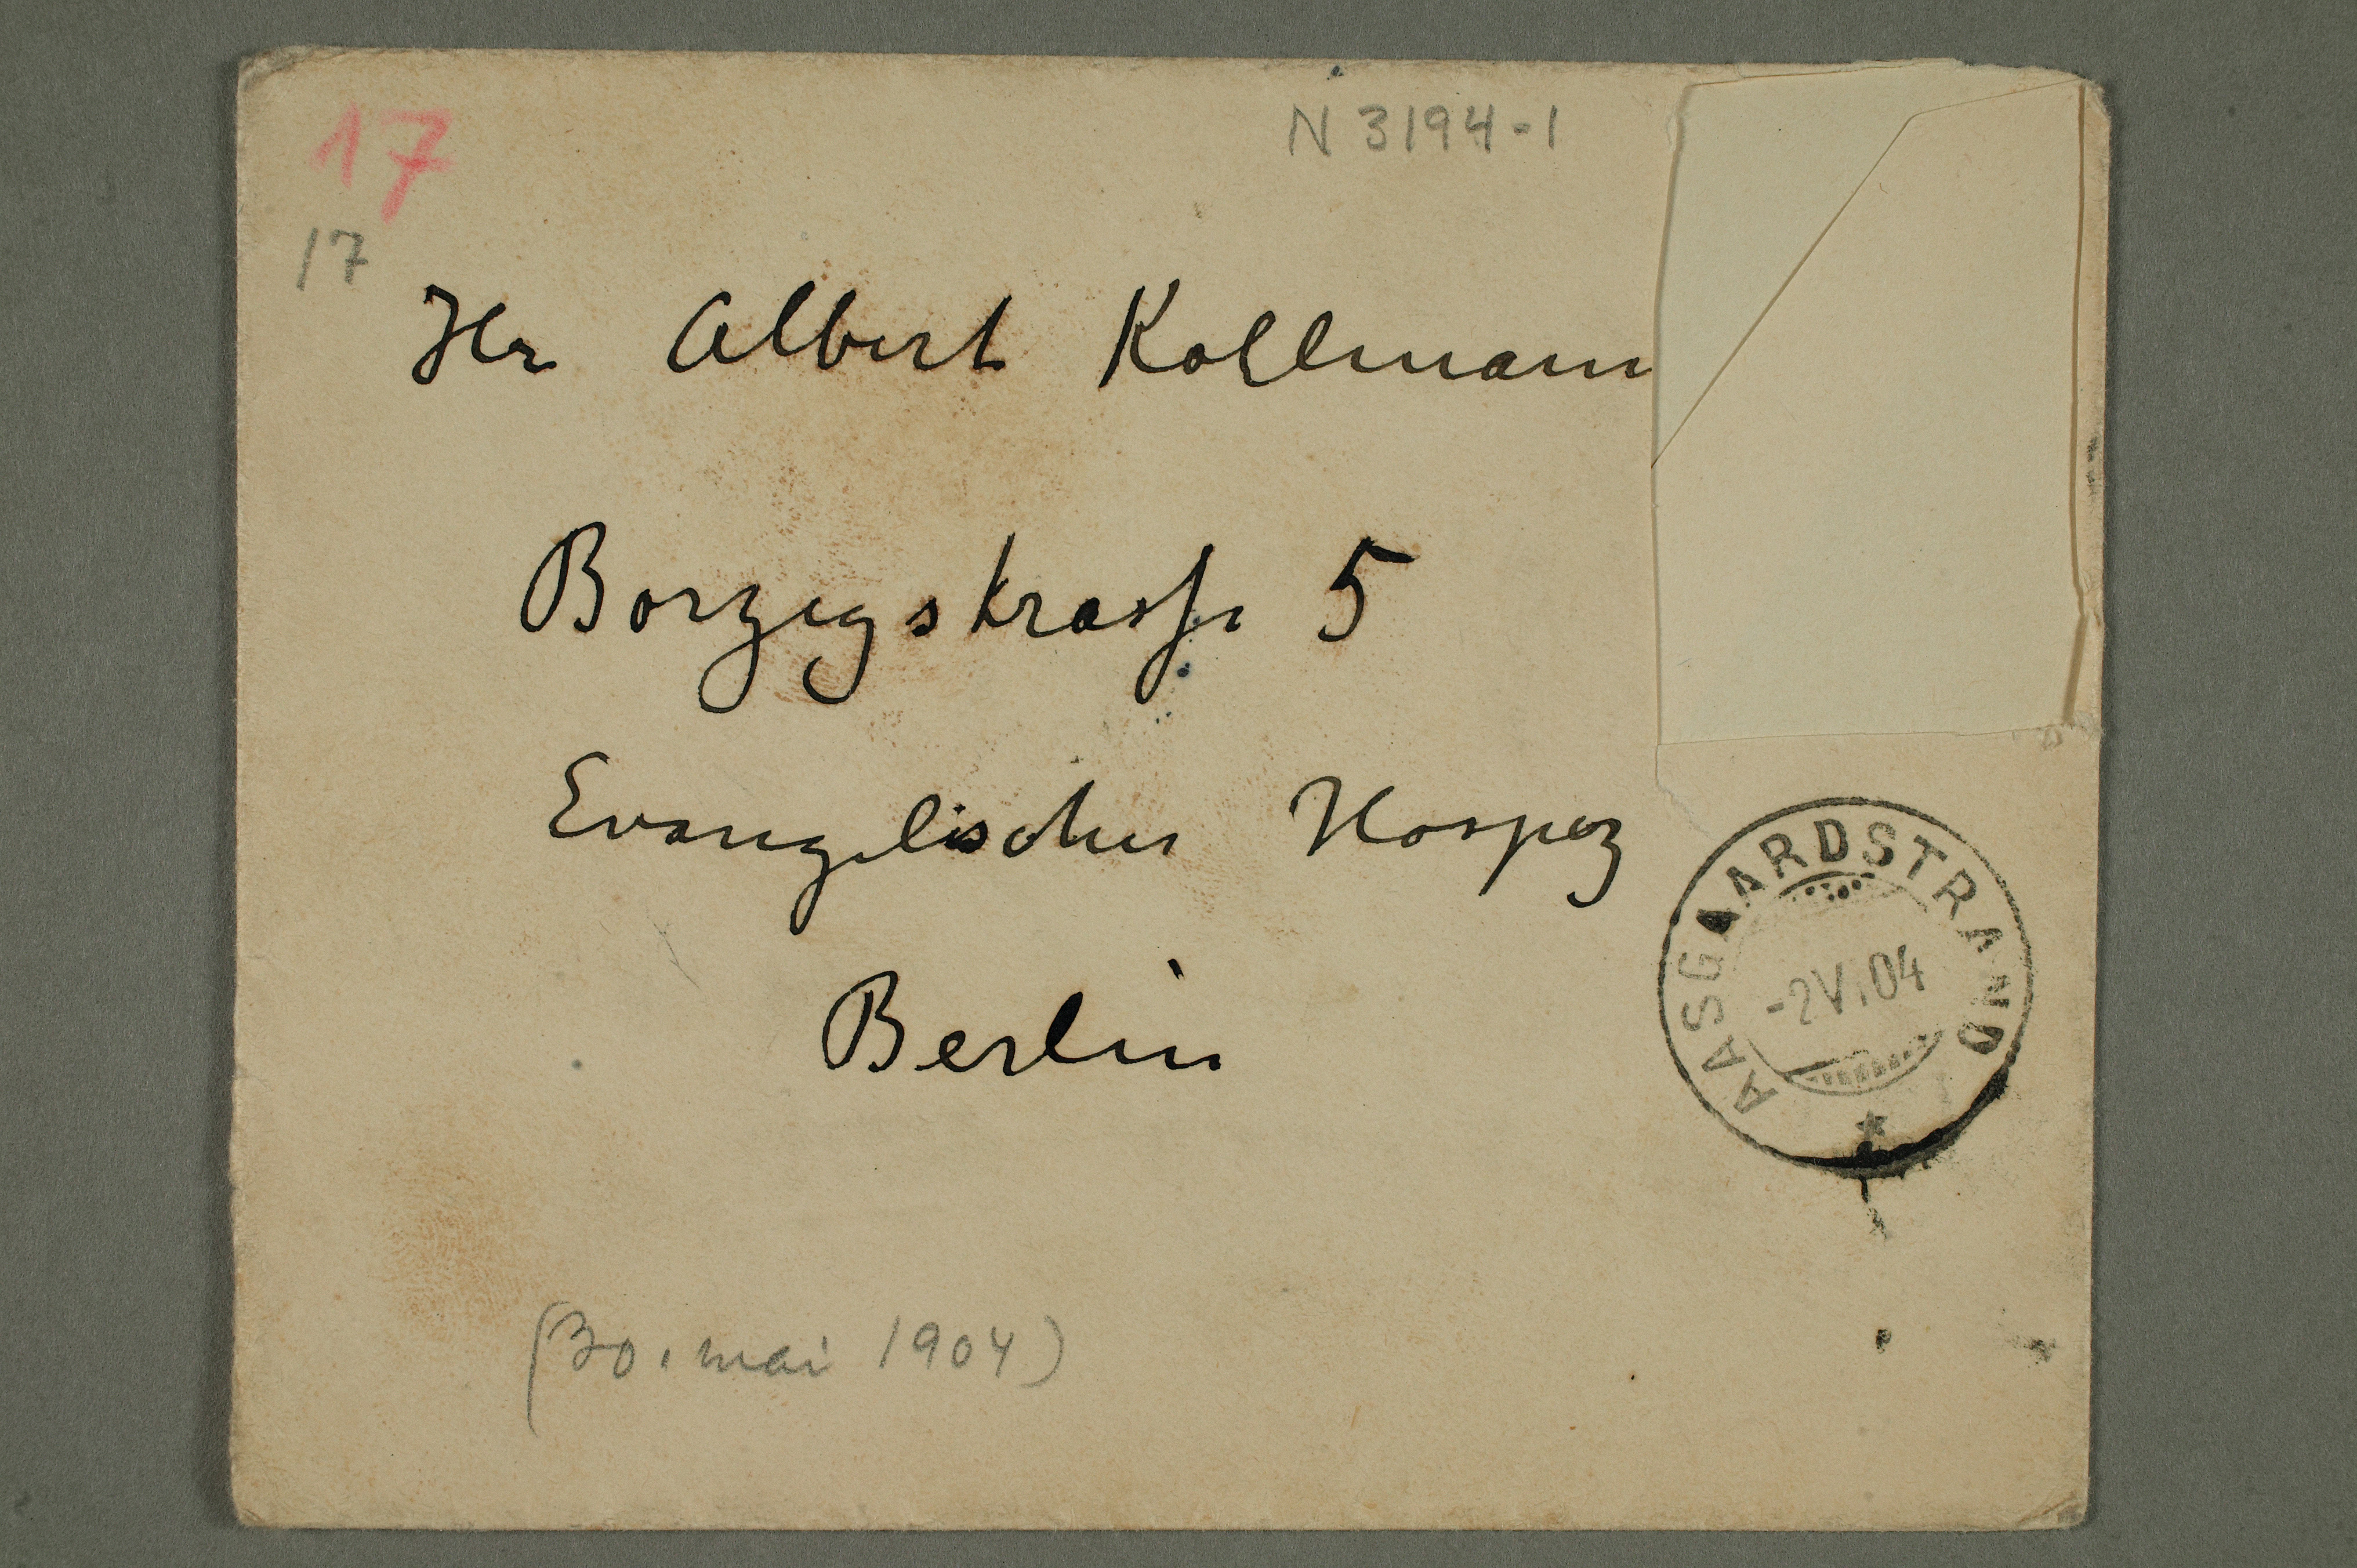 17
N 3194-1
17
Hr Albert Kollmann
Borzigstrasse 5
Evangelisches Hospiz
Berlin
AASGAARDSTRAND
-2 VI.04
(30. mai 1904)